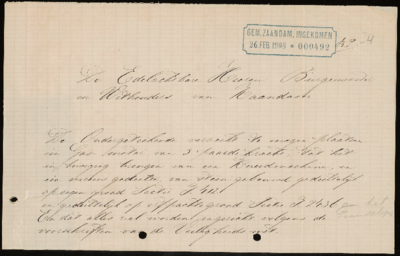 GEM. ZAANDAM, INGEKOMEN
26 FEB. 1906 * 000492
De Edelachtbare Heeren Burgemeester
en Wethouders van Zaandam
De Ondergeteekende verzoekt te mogen plaatsen
een Gas motor van 3 paardekracht tot het
in beweging brengen van een
een steen gebouwd gedeeltelijk
op eigen grond Sectie F.
en gedeeltelijk op erfpachtsgrond Sectie F.
En dat alles zal worden ingericht volgens de
voorschriften van de Veiligheids wet.